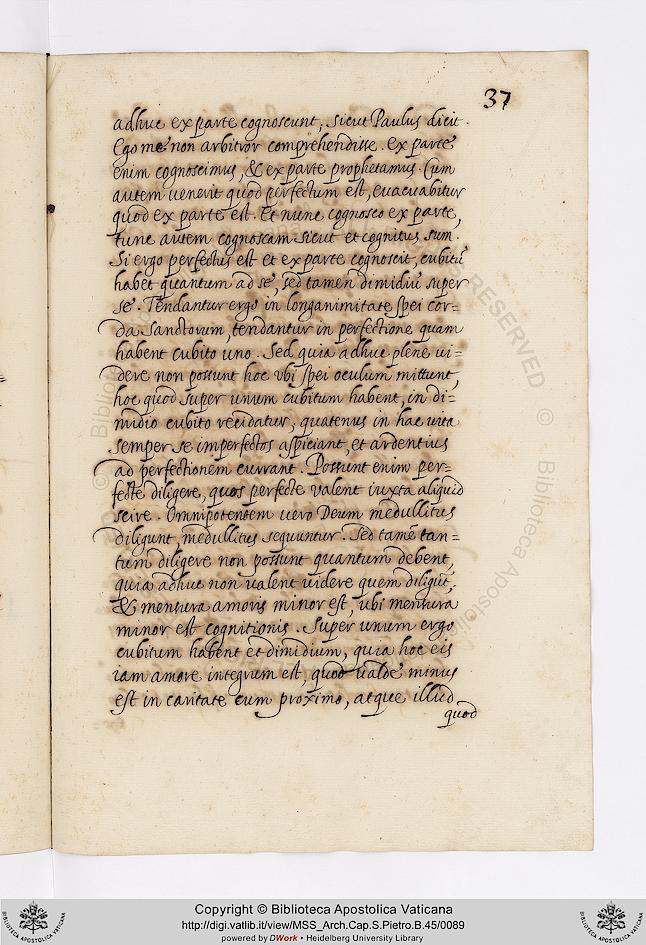 37
adhuc ex parte cognoscunt, sicut Paulus dicit.
Ego me non arbitror comprehendisse. Ex parte
enim cognoscimus, & ex parte prophetamus. Cum
autem venerit quod perfectum est, evacuabitur
quod ex parte est. Et nunc cognosco ex parte,
tunc autem cognoscam sicut et cognitus sum.
Si ergo perfectus est et ex parte cognoscit, cubitū
habet quantum ad se, sed tamen dimidiū super
se. Tendantur ergo in longanimitate spei cor=
da Sanctorum, tendantur in perfectione quam
habent cubito uno. Sed quia adhuc plene ui=
dere non possunt hoc vbi spei oculum mittunt,
hoc quod super unum cubitum habent, in di=
midio cubito recidatur, quatenus in hac vita
semper se imperfectos aspiciant, et ardentius
ad perfectionem currant. Possunt enim per=
fecte diligere, quos perfecte valent iuxta aliquid
scire. Omnipotentem uero Deum medullitus
diligunt, medullitus sequuntur. Sed tamē tan=
tum diligere non possunt quantum debent,
quia adhuc non valent uidere quem diligūt,
& mensura amoris minor est, ubi mensura
minor est cognitionis. Super unum ergo
cubitum habent et dimidium, quia hoc eis
iam amore integrum est, quod valde minus
est in caritate cum proximo, atque illud
quod
Copyright © Biblioteca Apostolica Vaticana
http://digi.vatlib.it/view/MSS_Arch.Cap.S.Pietro.B.45/0089
powered by DWork • Heidelberg University Library